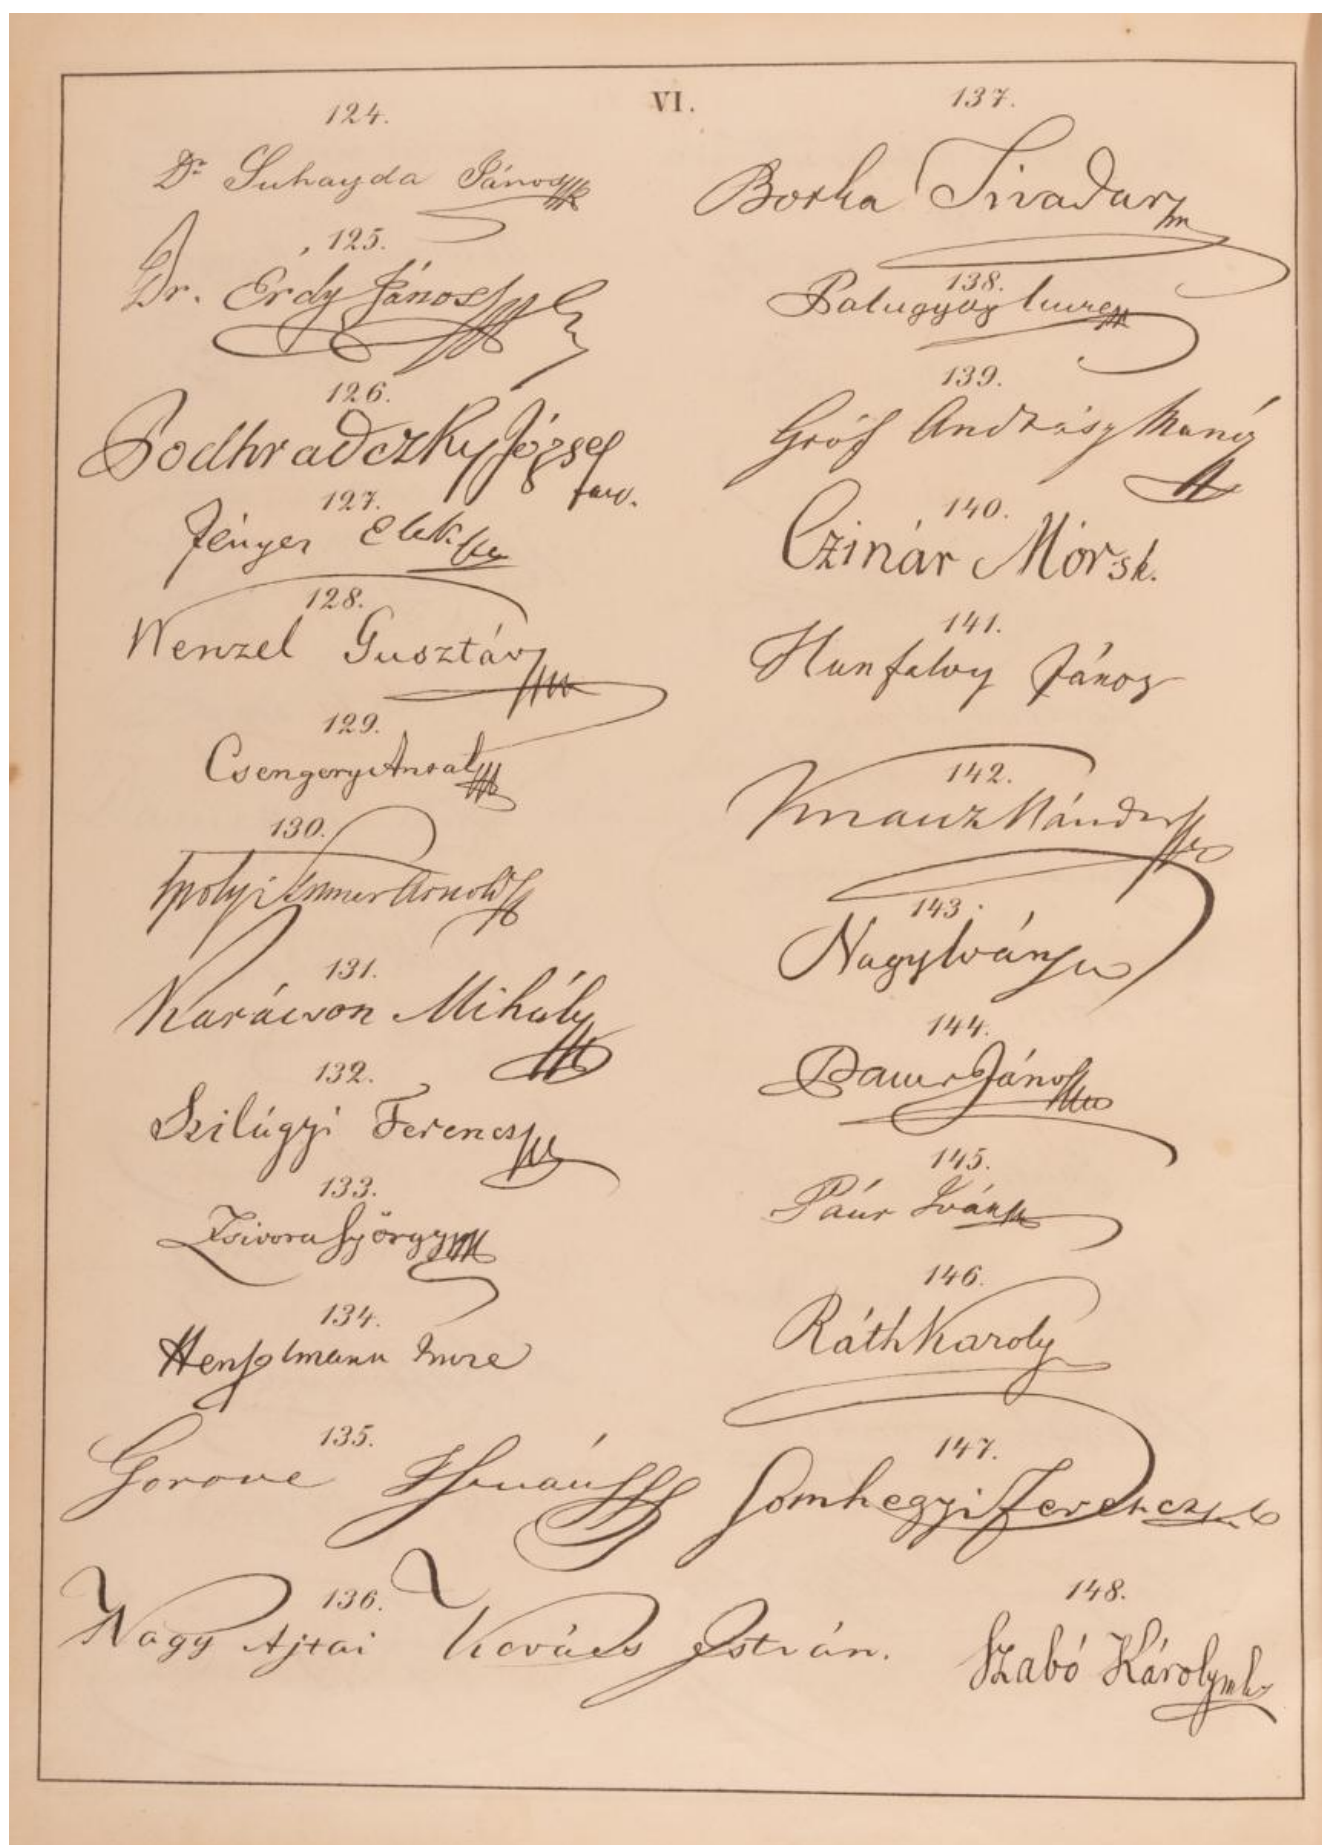 VI.
124.
Dr Suhayda János
125.
Dr. Érdy János
126.
Podhradczky József
127.
Fényes Elek
128.
Wenzel Gusztáv
129.
Csengery Antal
130.
Ipolyi Arnold
131.
Karácson Mihály
132.
Szilágyi Ferencz
133.
Zsivora György
134.
Henszlmann Imre
135.
Gorove István
136.
Nagy Ajtai Kovács István.
137.
Botka Tivadar
138.
Palugyay Imre
139.
Gróf Andrásy Manó
140.
Czinár Mór sk.
141.
Hunfalvy János
142.
Knauz Nándor
143.
Nagy Iván
144.
Pauer János
145.
Páúr Iván
146.
Ráth Károly
147.
Somhegyi Ferencz
148.
Szabó Károly mk